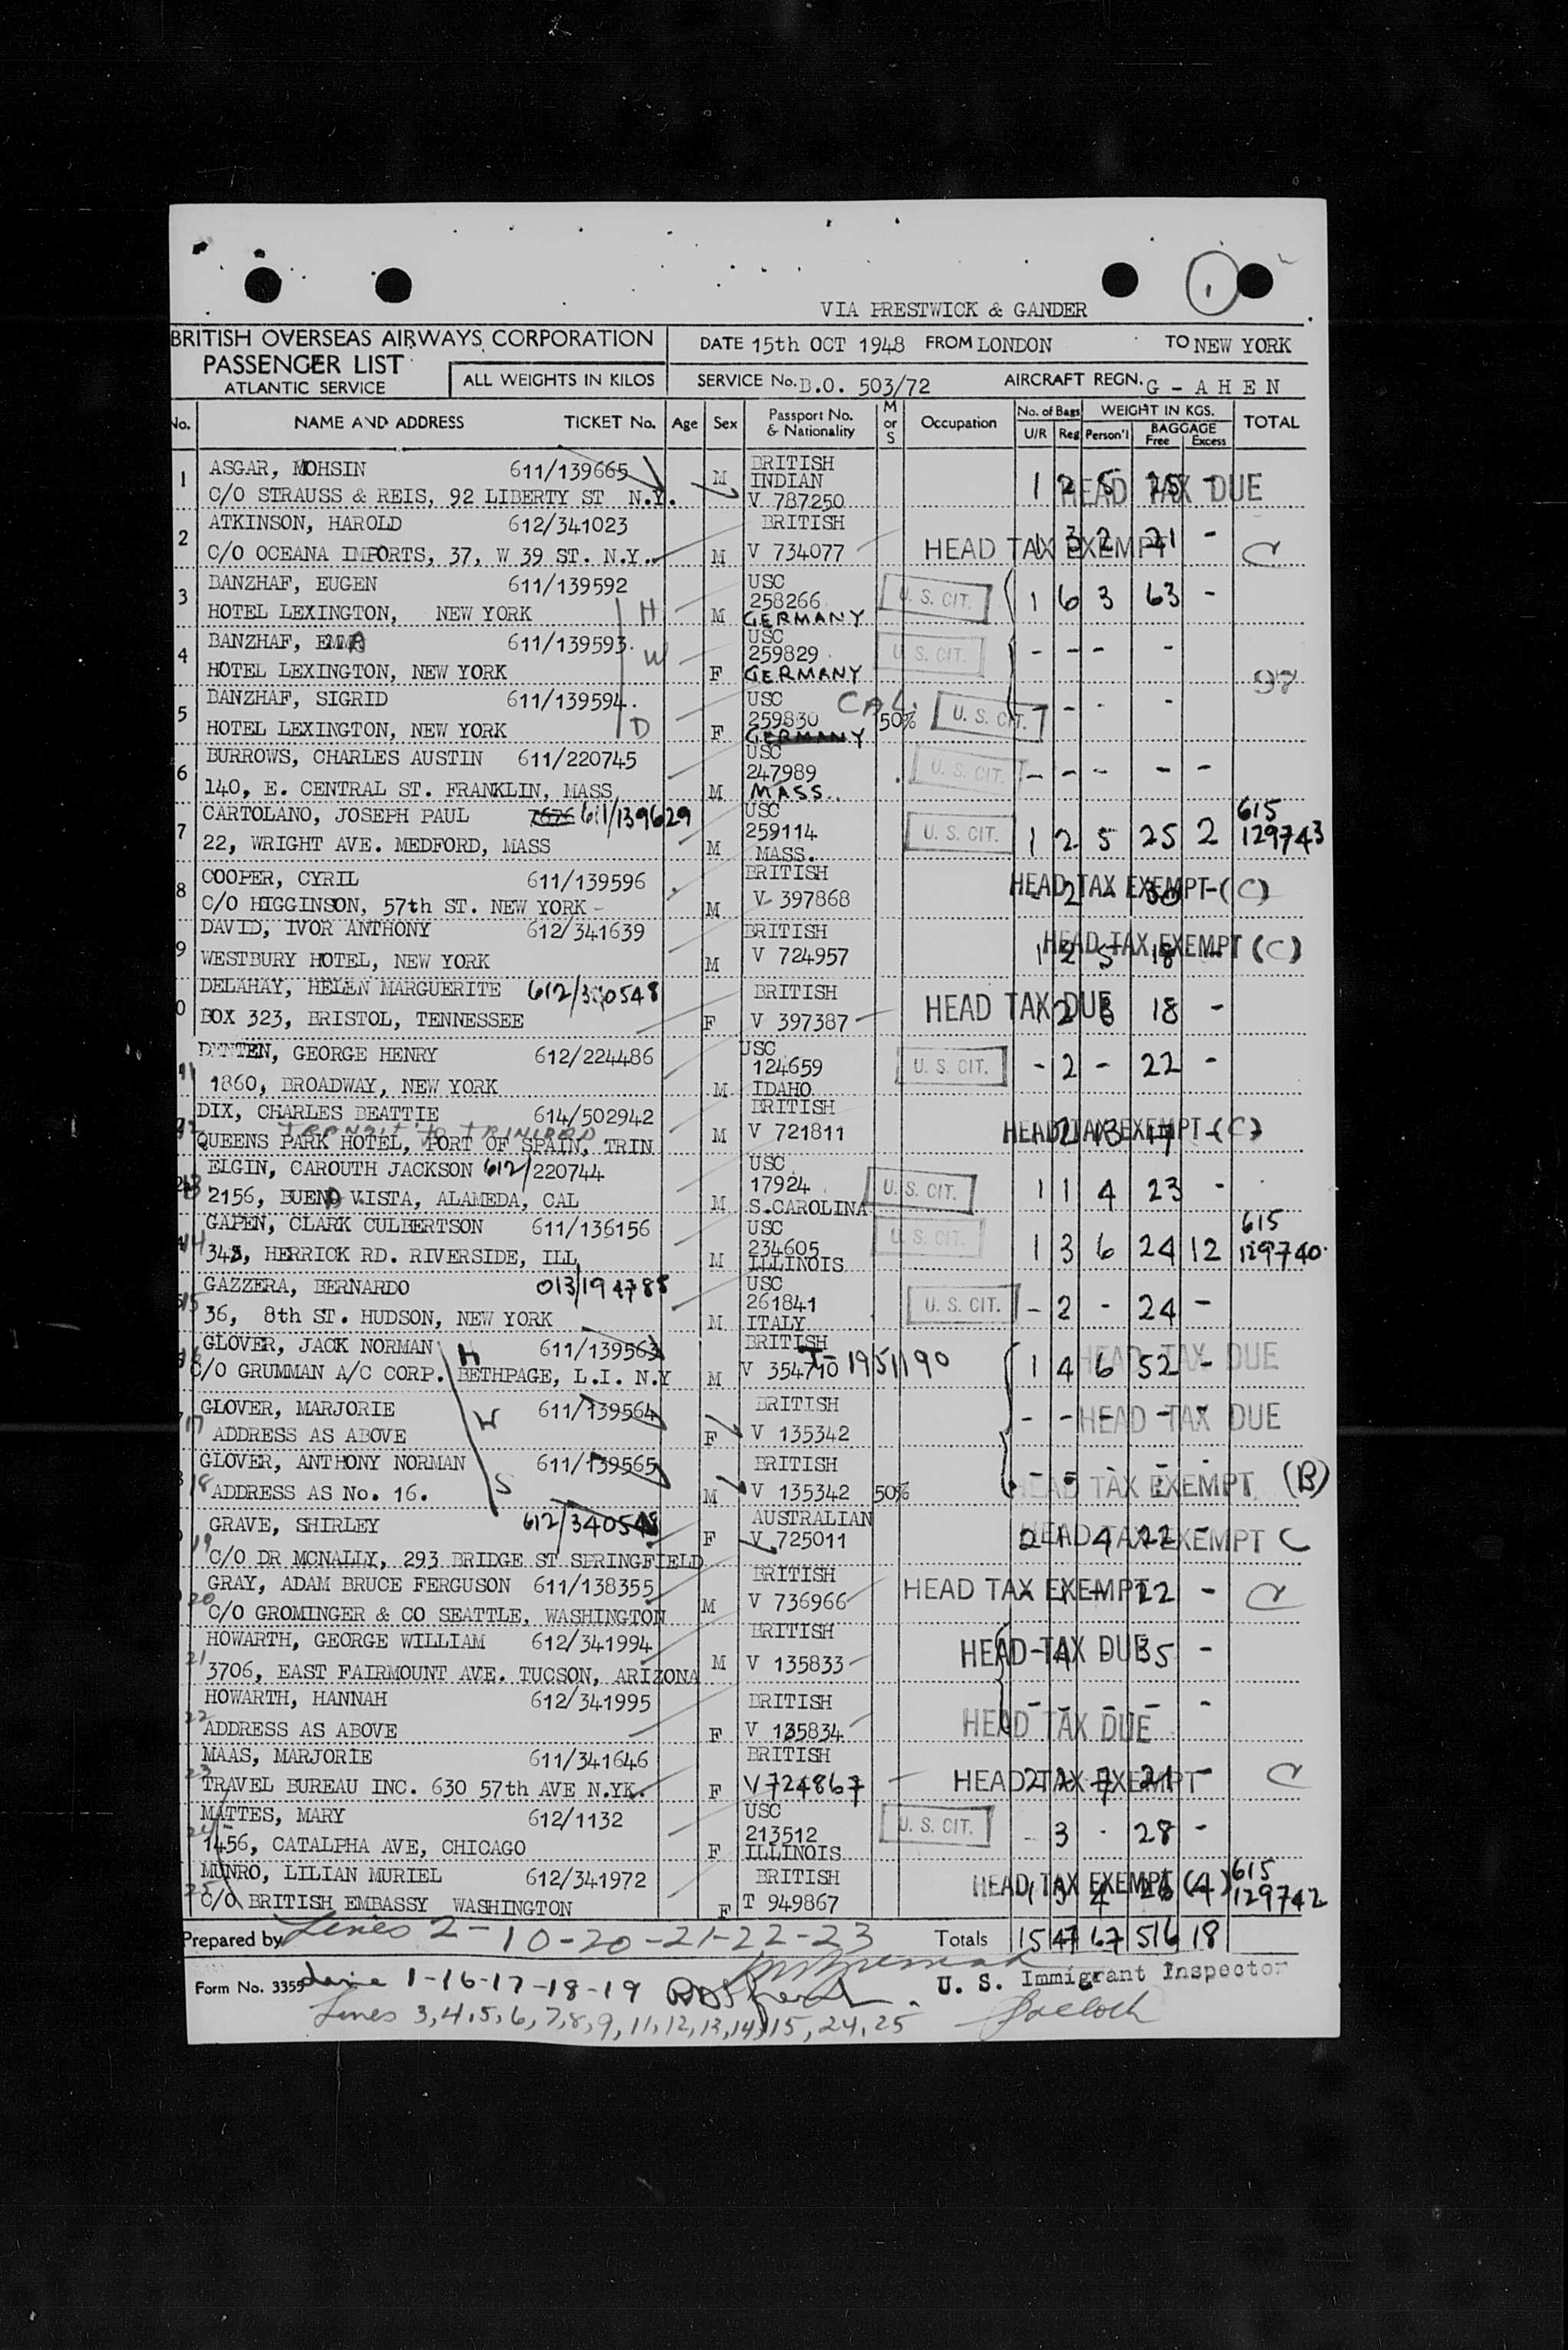 VIA PRESTWICK & GANDER
BRITISH OVERSEAS AIRWAYS CORPORATION
PASSENGER LIST
ATLANTIC SERVICE
ALL WEIGHTS IN KILOS
DATE 15th OCT 1948 FROM LONDON TO NEW YORK
SERVICE No. B.O. 503/72 AIRCRAFT REGN. G - A H E N
No. NAME AND ADDRESS TICKET No. Age Sex Passport No. & Nationality M or S Occupation No. of Bags U/R Reg WEIGHT IN KGS. Person'l BAGGAGE Free Excess TOTAL
1 ASGAR, MOHSIN 611/139665 M BRITISH INDIAN
C/O STRAUSS & REIS, 92 LIBERTY ST N.Y. V 787250 1 2 5 25 - HEAD TAX DUE
2 ATKINSON, HAROLD 612/341023 BRITISH
C/O OCEANA IMPORTS, 37, W 39 ST. N.Y. M V 734077 HEAD TAX EXEMPT 1 3 2 21 - C
3 BANZHAF, EUGEN 611/139592 USC 258266 U. S. CIT. 1 6 3 63 -
HOTEL LEXINGTON, NEW YORK H M GERMANY
4 BANZHAF, EMMA 611/139593 USC 259829 U. S. CIT. - - - -
HOTEL LEXINGTON, NEW YORK W F GERMANY 97
5 BANZHAF, SIGRID 611/139594 USC CAL. 259830 50% U. S. CIT. - - -
HOTEL LEXINGTON, NEW YORK D F GERMANY
6 BURROWS, CHARLES AUSTIN 611/220745 USC 247989 U. S. CIT. - - - - -
140, E. CENTRAL ST. FRANKLIN, MASS M MASS.
7 CARTOLANO, JOSEPH PAUL 611/139629 USC 259114 U. S. CIT. 1 2 5 25 2 615 129743
22, WRIGHT AVE. MEDFORD, MASS M MASS.
8 COOPER, CYRIL 611/139596 BRITISH HEAD TAX EXEMPT - (C)
C/O HIGGINSON, 57th ST. NEW YORK - M V 397868 - 2 - 30
9 DAVID, IVOR ANTHONY 612/341639 BRITISH HEAD TAX EXEMPT (C)
WESTBURY HOTEL, NEW YORK M V 724957 1 2 5 18 -
0 DELAHAY, HELEN MARGUERITE 612/340548 BRITISH HEAD TAX DUE
BOX 323, BRISTOL, TENNESSEE F V 397387 2 3 18 -
11 DENTEN, GEORGE HENRY 612/224486 USC 124659 U. S. CIT. - 2 - 22 -
1860, BROADWAY, NEW YORK M IDAHO
DIX, CHARLES BEATTIE 614/502942 BRITISH HEAD TAX EXEMPT - (C)
TRANSIT TO TRINIDAD
QUEENS PARK HOTEL, PORT OF SPAIN, TRIN M V 721811 1 2 3 17
13 ELGIN, CAROUTH JACKSON 612/220744 USC 17924 U. S. CIT. 1 1 4 23 -
2156, BUENA VISTA, ALAMEDA, CAL M S.CAROLINA
14 GAPEN, CLARK CULBERTSON 611/136156 USC 234605 U. S. CIT. 1 3 6 24 12 615 129740
348, HERRICK RD. RIVERSIDE, ILL M ILLINOIS
15 GAZZERA, BERNARDO 013/194788 USC 261841 U. S. CIT. - 2 - 24 -
36, 8th ST. HUDSON, NEW YORK M ITALY
GLOVER, JACK NORMAN H 611/139563 BRITISH
C/O GRUMMAN A/C CORP. BETHPAGE, L.I. N.Y M V 354710 1 4 6 52 - HEAD TAX DUE
17 GLOVER, MARJORIE W 611/139564 BRITISH - - - - - HEAD TAX DUE
ADDRESS AS ABOVE F V 135342
18 GLOVER, ANTHONY NORMAN 611/139565 BRITISH
ADDRESS AS No. 16. S M V 135342 50% HEAD TAX EXEMPT (B)
19 GRAVE, SHIRLEY 612/340548 F AUSTRALIAN V 725011 2 1 4 22 - HEAD TAX EXEMPT C
C/O DR MCNALLY, 293 BRIDGE ST SPRINGFIELD
20 GRAY, ADAM BRUCE FERGUSON 611/138355 BRITISH HEAD TAX EXEMPT 22 - C
C/O GROMINGER & CO SEATTLE, WASHINGTON M V 736966
21 HOWARTH, GEORGE WILLIAM 612/341994 BRITISH HEAD TAX DUE - 4 - 35 -
3706, EAST FAIRMOUNT AVE. TUCSON, ARIZONA M V 135833
22 HOWARTH, HANNAH 612/341995 BRITISH - - - - -
ADDRESS AS ABOVE F V 135834 HEAD TAX DUE
23 MAAS, MARJORIE 611/341646 BRITISH
TRAVEL BUREAU INC. 630 57th AVE N.YK. F V724867 HEAD TAX EXEMPT 2 2 7 21 - C
24 MATTES, MARY 612/1132 USC 213512 U. S. CIT. - 3 - 28 -
1456, CATALPHA AVE, CHICAGO F ILLINOIS
25 MUNRO, LILIAN MURIEL 612/341972 BRITISH HEAD TAX EXEMPT (4) 615
C/O BRITISH EMBASSY WASHINGTON F T 949867 1 3 4 26 4 129742
Prepared by Lines 2-10-20-21-22-23 Totals 15 47 67 516 18
Form No. 3355 Line 1-16-17-18-19 U. S. Immigrant Inspector
Lines 3,4,5,6,7,8,9,11,12,13,14,15,24,25